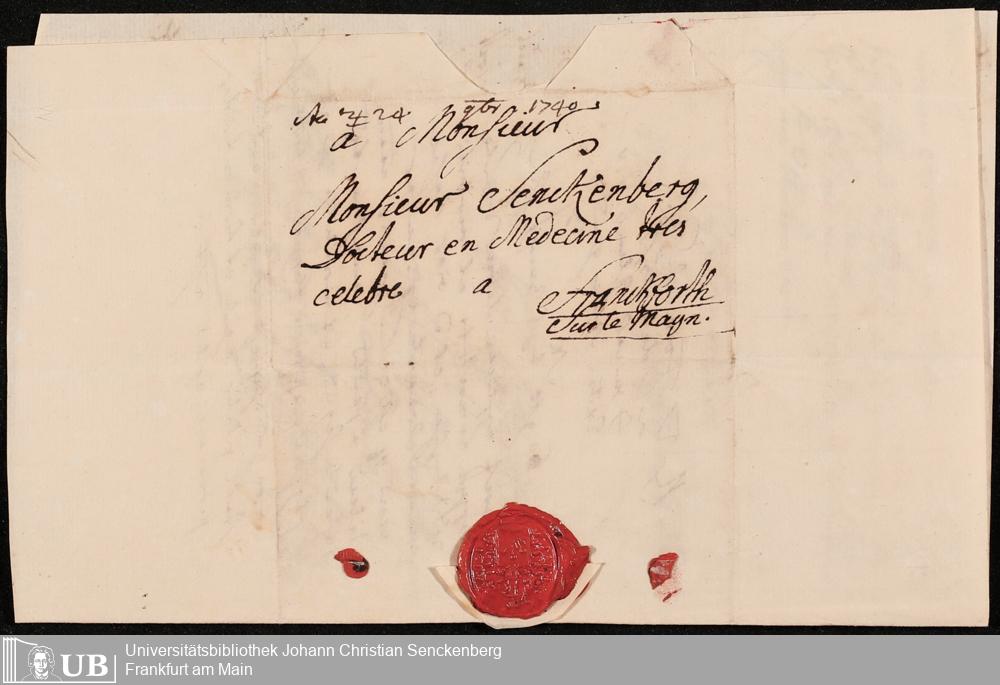 Ac ♃ 24 9br 1740.
a Monsieur
Monsieur Senckenberg,
Docteur en Medecine tres
celebre a Franckforth
Sur le Mayn.
UB
Universitätsbibliothek Johann Christian Senckenberg
Frankfurt am Main